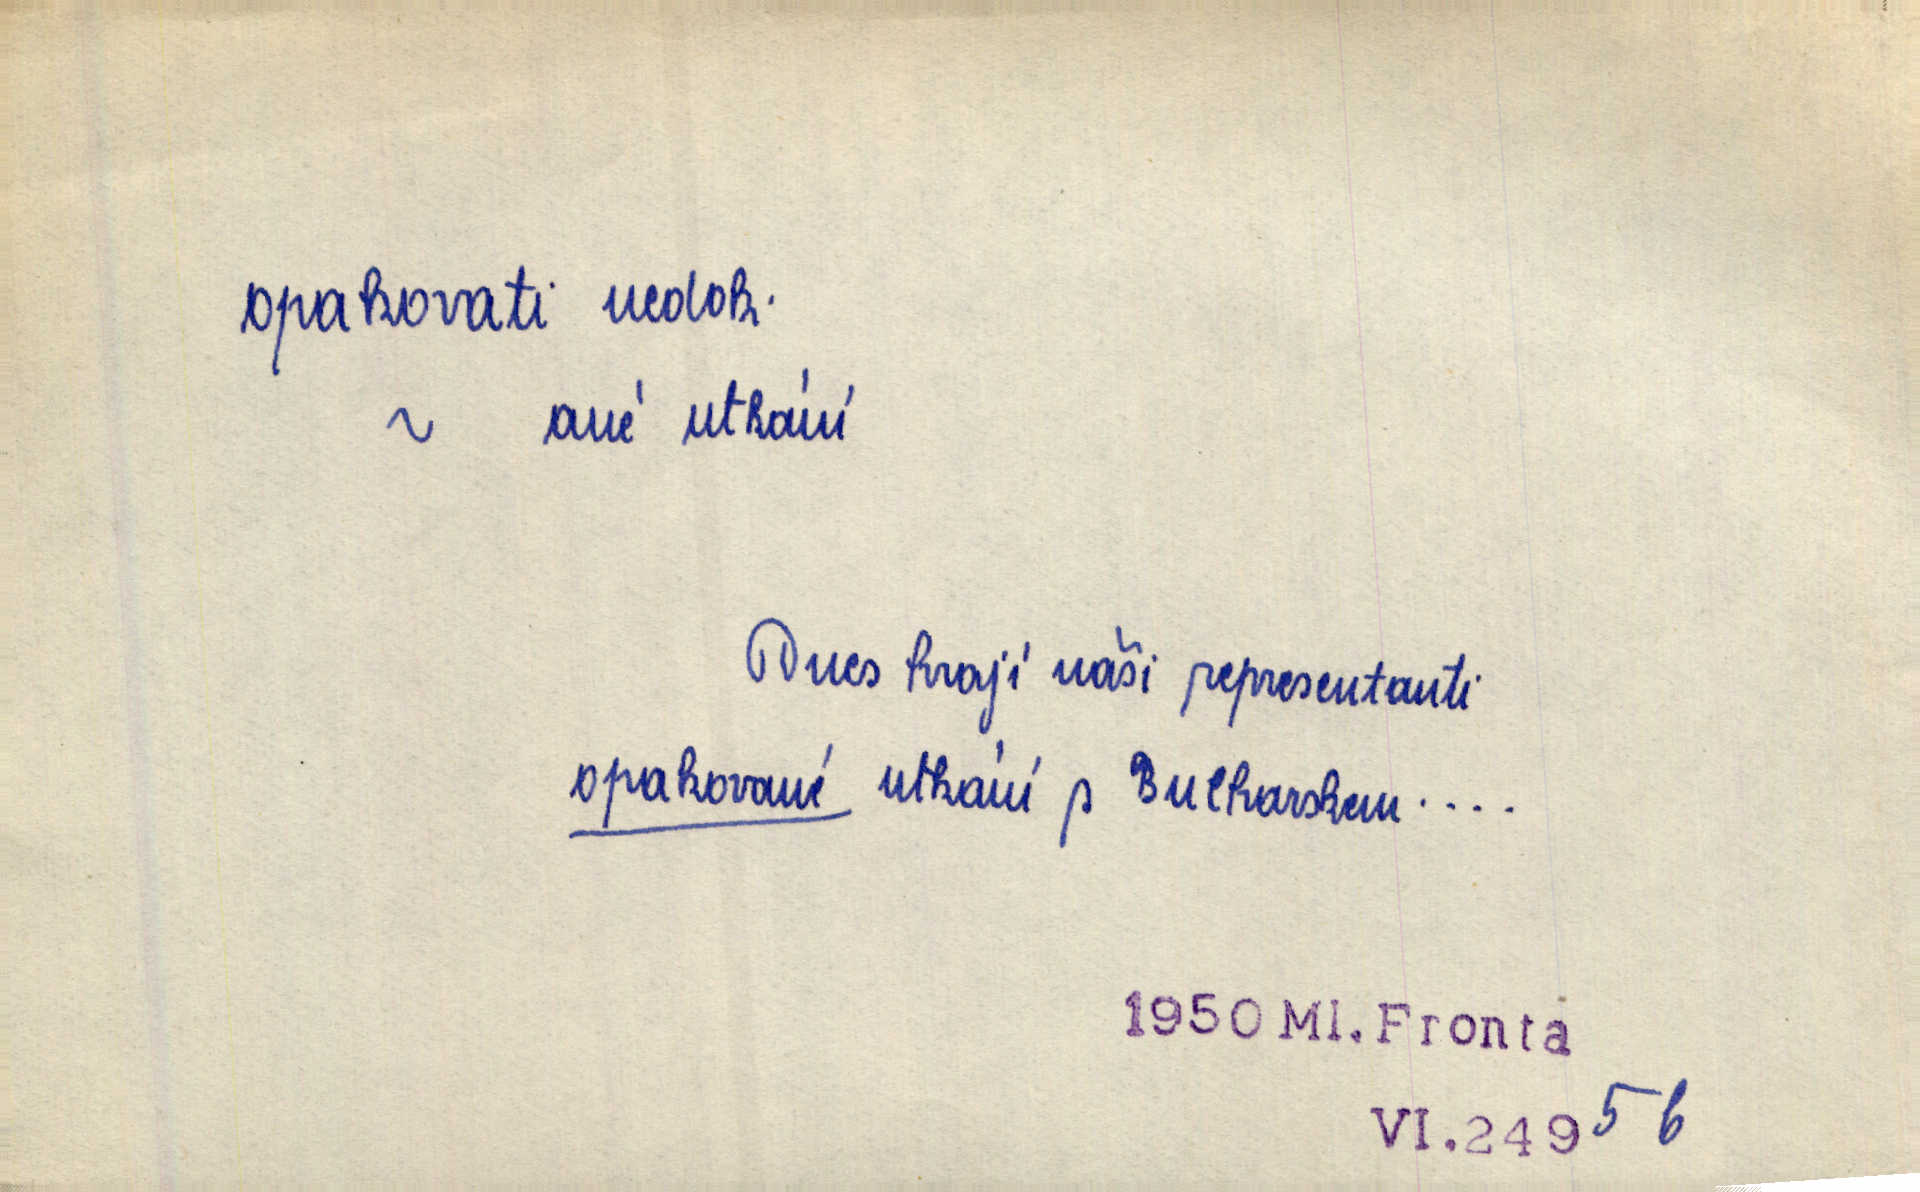 opakovati nedok.
~ ané utkání
Dnes hrají náši representanti
opakované utkání s Bulharskem....
1950 Ml. Fronta
VI. 249 5 b